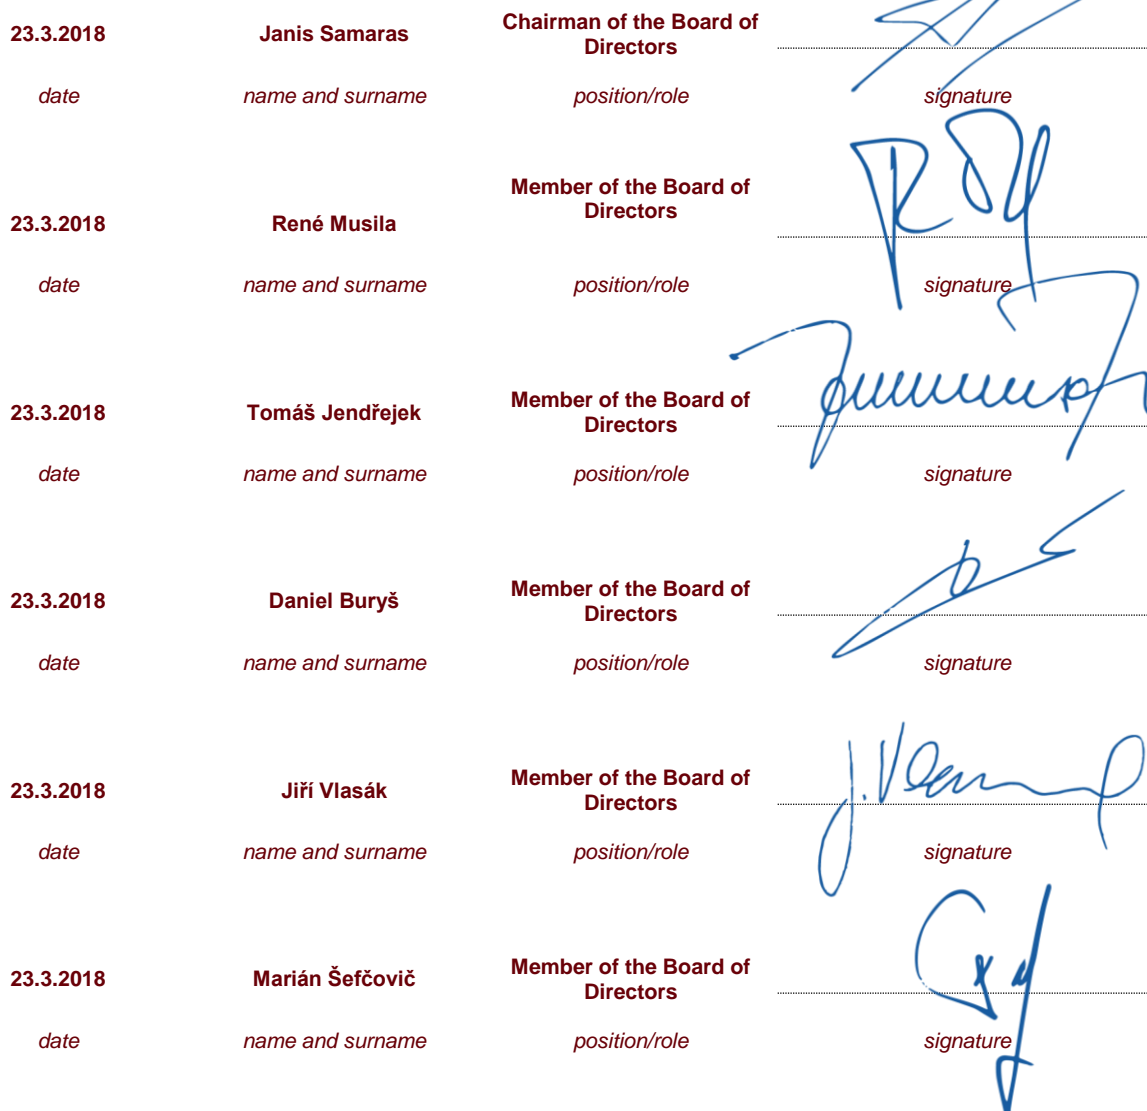 23.3.2018 Janis Samaras Chairman of the Board of Directors
date name and surname position/role signature
23.3.2018 René Musila Member of the Board of Directors
date name and surname position/role signature
23.3.2018 Tomáš Jendřejek Member of the Board of Directors
date name and surname position/role signature
23.3.2018 Daniel Buryš Member of the Board of Directors
date name and surname position/role signature
23.3.2018 Jiří Vlasák Member of the Board of Directors
date name and surname position/role signature
23.3.2018 Marián Šefčovič Member of the Board of Directors
date name and surname position/role signature